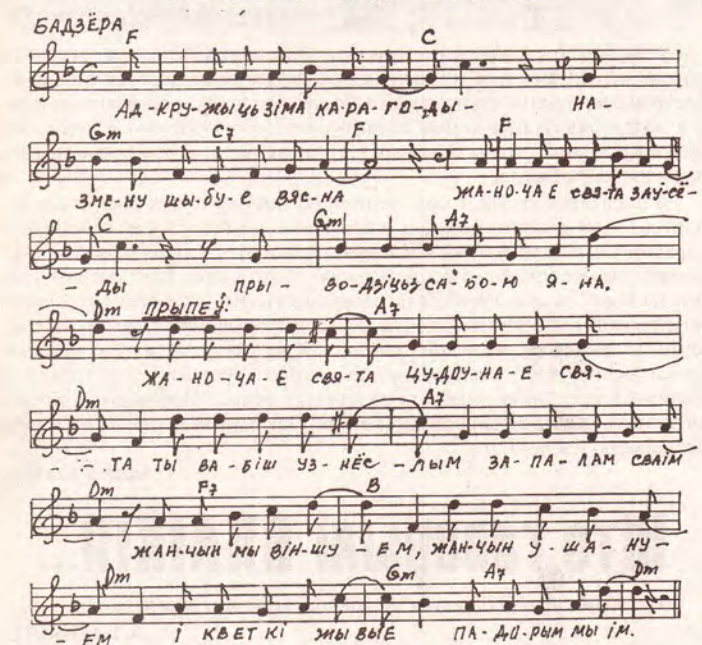 БАДЗЁРА
F C
АД-КРУ-ЖЫЦЬ ЗІМА КА-РА-ГО-ДЫ- НА
Gm C7 F F
ЗМЕ-НУ ШЫ-БУ-Е ВЯС-НА ЖА-НО-ЧА Е СВЯ-ТА ЗАЎ-СЁ-
C Gm A7
- ДЫ ПРЫ- ВО-ДЗІЦЬ З СА-БО-Ю Я-НА.
Dm ПРЫПЕЎ: A7
ЖА-НО-ЧА-Е СВЯ-ТА ЦУ-ДОУ-НА-Е СВЯ-
Dm A7
- ТА ТЫ ВА-БІШ УЗ-НЁС-ЛЫМ ЗА-ПА-ЛАМ СВАІМ
Dm F7 B
ЖАН-ЧЫН МЫ ВІН-ШУ-ЕМ, ЖАН-ЧЫН У-ША-НУ-
Dm Gm A7 Dm
- ЕМ І КВЕТКІ ЖЫВЫЕ ПА-ДО-РЫМ МЫ ІМ.